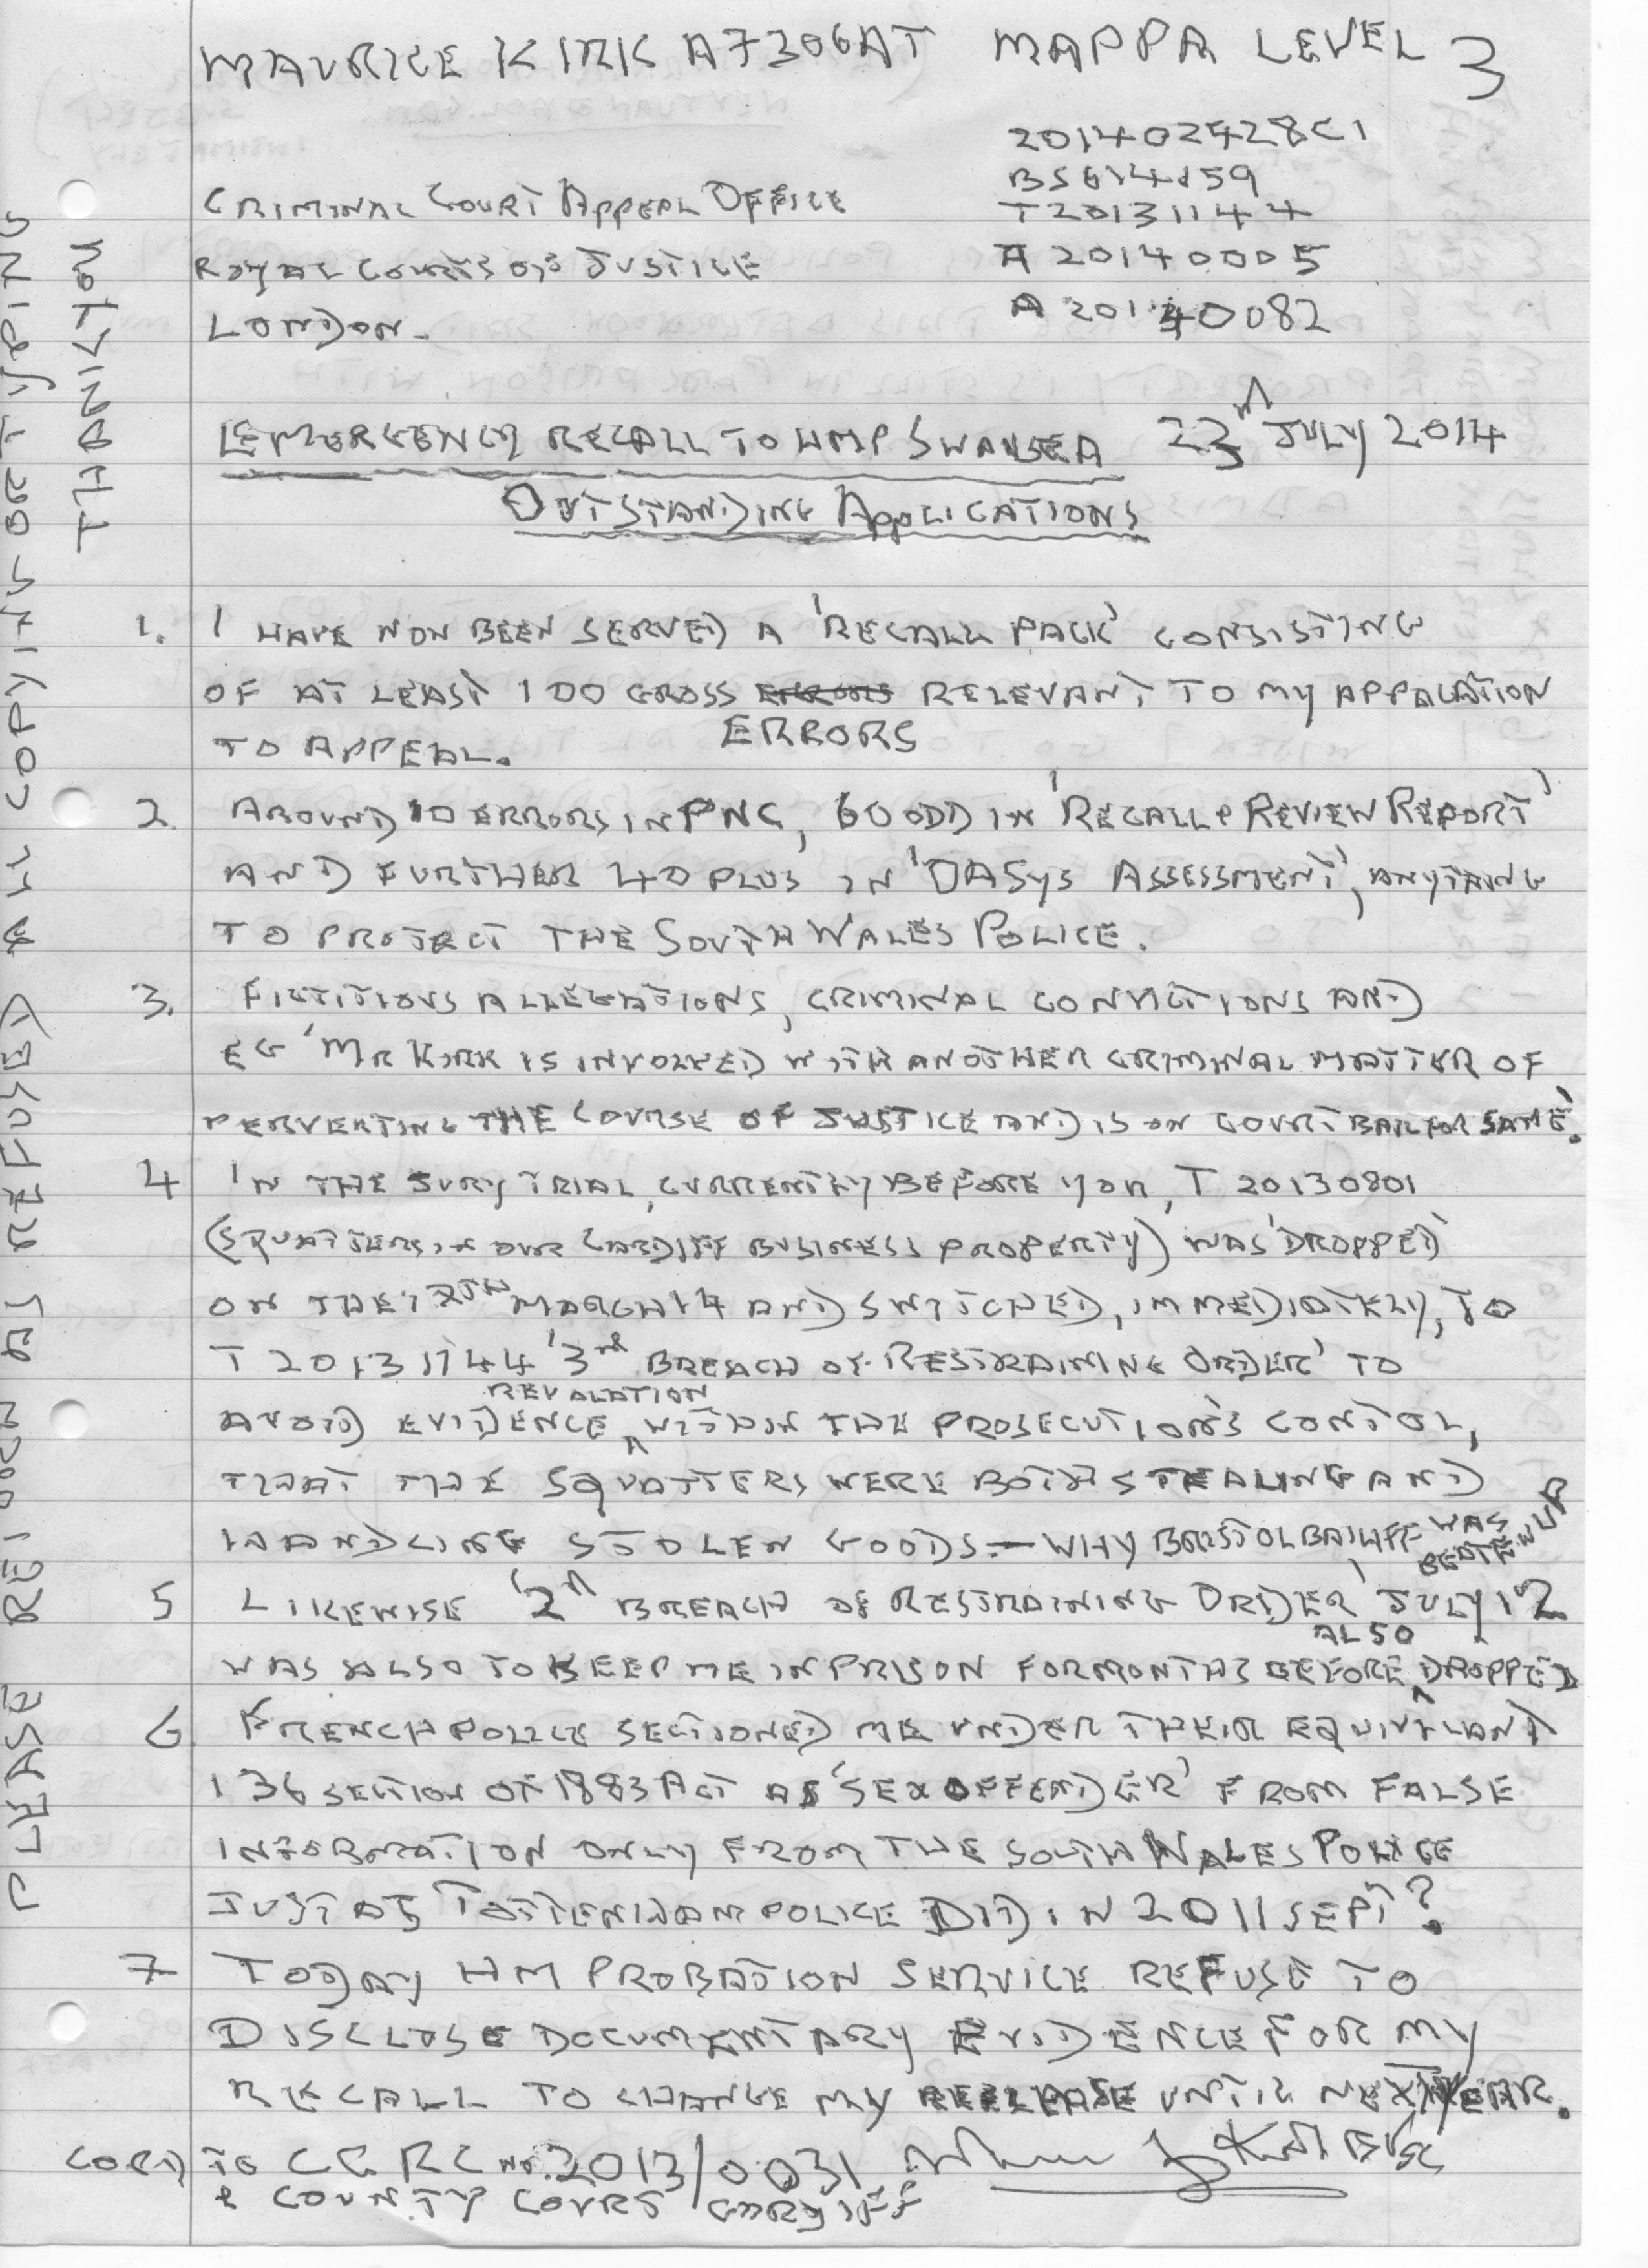 MAURICE KIRK A7306AT MAPPA LEVEL 3
201402428C1
BS614159
CRIMINAL COURT APPEAL OFFICE
T20131144
ROYAL COURTS OF JUSTICE
A 20140005
LONDON.
A 20140082
EMERGENCY RECALL TO HMP SWANSEA 23rd JULY 2014
OUTSTANDING APPLICATIONS
1. I HAVE NOW BEEN SERVED A 'RECALL PACK' CONSISTING
OF AT LEAST 100 GROSS ERRORS RELEVANT TO MY APPLICATION
ERRORS
TO APPEAL.
2. AROUND 10 ERRORS IN PNC, 60 ODD IN 'RECALL & REVIEW REPORT'
AND FURTHER 40 PLUS IN 'OASys ASSESSMENT', ANYTHING
TO PROTECT THE SOUTH WALES POLICE.
3. FICTITIOUS ALLEGATIONS, CRIMINAL CONVICTIONS AND
EG 'MR KIRK IS INVOLVED WITH ANOTHER CRIMINAL MATTER OF
PERVERTING THE COURSE OF JUSTICE AND IS ON COURT BAIL FOR SAME'.
4 IN THE JURY TRIAL, CURRENTLY BEFORE YOU, T 20130801
(SQUATTERS IN OUR CARDIFF BUSINESS PROPERTY) WAS 'DROPPED'
ON THE 17TH MARCH 14 AND SWITCHED, IMMEDIATELY, TO
T 20131144 '3rd BREACH OF RESTRAINING ORDER' TO
REVALATION
AVOID EVIDENCE WITHIN THE PROSECUTION'S CONTOL,
THAT THE SQUATTERS WERE BOTH STEALING AND
HANDLING STOLEN GOODS - WHY BRISTOL BAILIFF WAS BEATEN UP
5 LIKEWISE '2nd BREACH OF RESTRAINING ORDER' JULY 12
ALSO
WAS ALSO TO KEEP ME IN PRISON FOR MONTHS BEFORE DROPPED
6 FRENCH POLICE SECTIONED ME UNDER THEIR EQUIVILANT
136 SECTION OF 1883 ACT AS 'SEX OFFENDER' FROM FALSE
INFORMATION ONLY FROM THE SOUTH WALES POLICE
JUST AS TOTTENHAM POLICE DID IN 2011 SEPT?
7 TODAY HM PROBATION SERVICE REFUSE TO
DISCLOSE DOCUMENTARY EVIDENCE FOR MY
RECALL TO CHANGE MY RELEASE UNTIL NEXT YEAR.
COPY TO CCRC No. 2013/0031
& COUNTY COURT CARDIFF
PLEASE
REFUSED ALL COPYING OR TYPING
THANK YOU